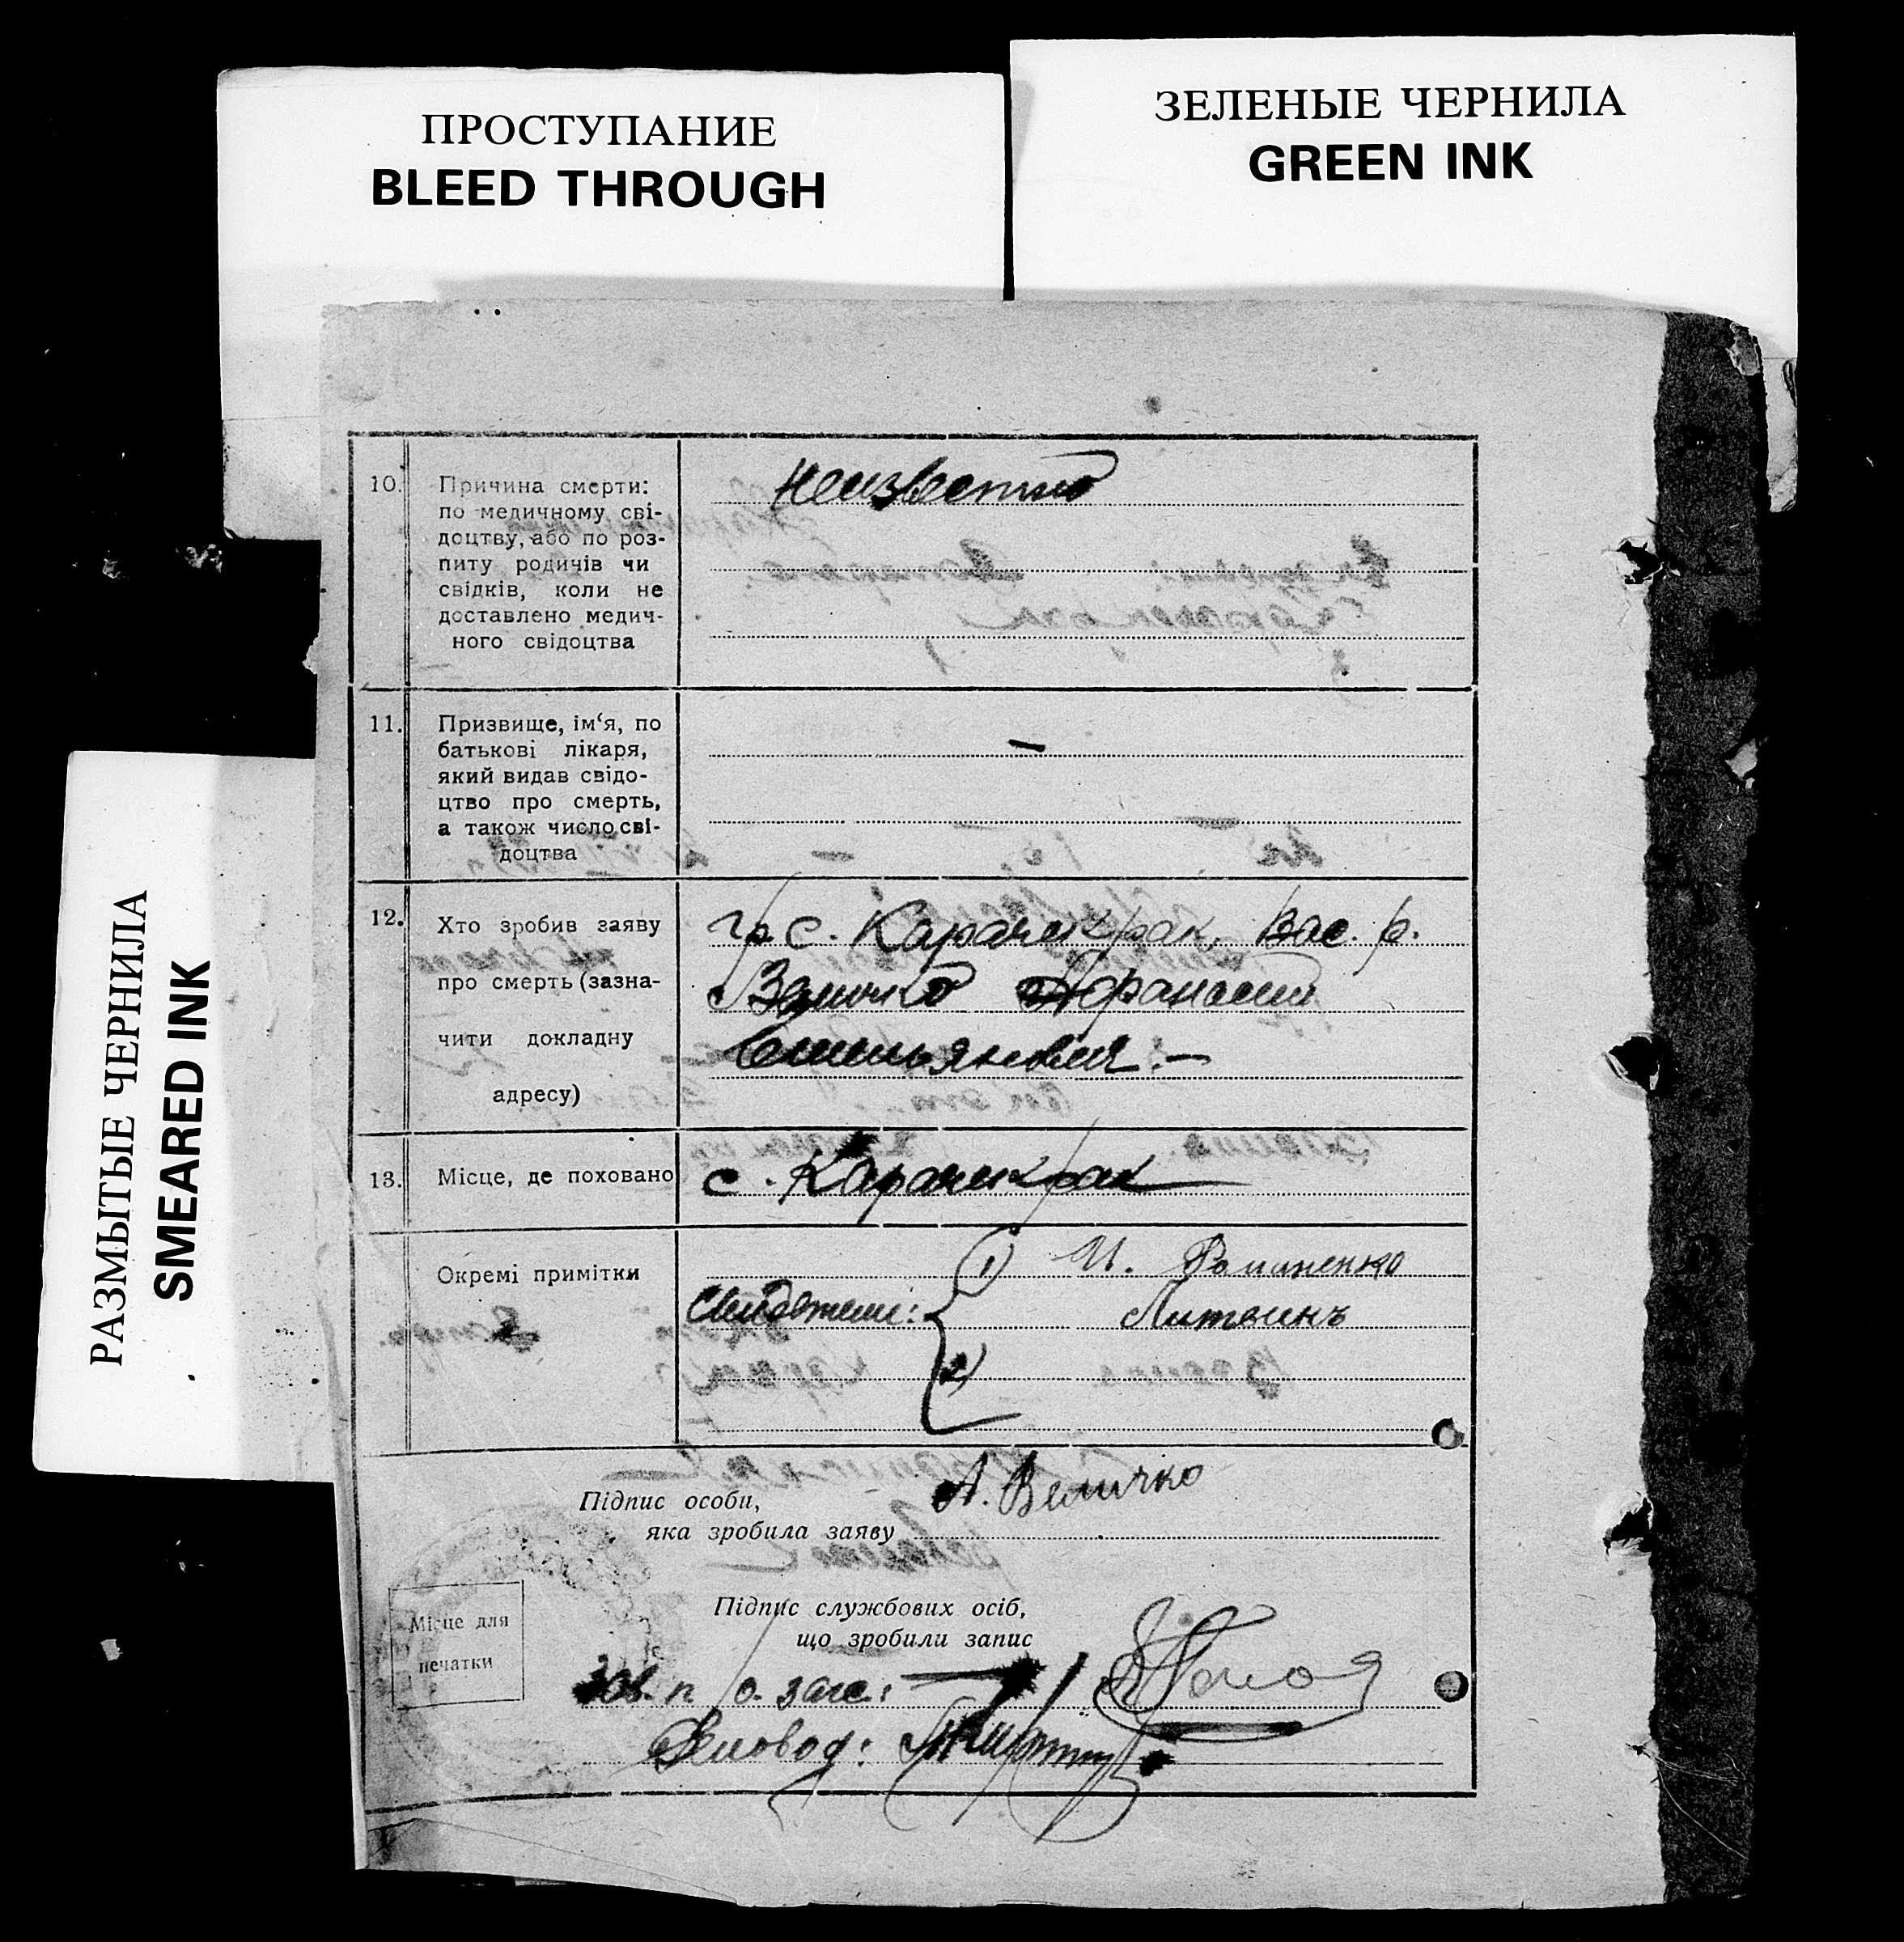 ПРОСТУПАНИЕ
BLEED THROUGH
ЗЕЛЕНЫЕ ЧЕРНИЛА
GREEN INK
РАЗМЫТЫЕ ЧЕРНИЛА
SMEARED INK
10. Причина смерти:
по медичному сві-
доцтву, або по роз-
питу родичів чи
свідків, коли не
доставлено медич-
ного свідоцтва
неизвестно
11. Призвище, ім‘я, по
батькові лікаря,
який видав свідо-
цтво про смерть,
а також число сві-
доцтва
—
12. Хто зробив заяву
про смерть (зазна-
чити докладну
адресу)
гр. с. Карачекрак, Вас. р.
Величко Афанасий
Емельянович. —
13. Місце, де поховано
с. Карачекрак
Окремі примітки
1) И. Романенко
Литвинъ
2)
Підпис особи,
яка зробила заяву
А. Величко
Місце для
печатки
Підпис службових осіб,
що зробили запис
Зав. п/о. загс:
Деловод: